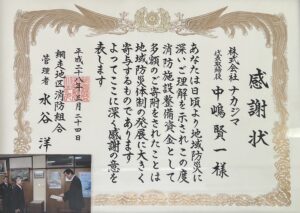 感謝状
株式会社 ナカジマ
代表取締役
中嶋賢一 様
あなたは日頃より地域防災に
深いご理解を示されこの度
消防施設整備資金として
多額のご寄附されたことは
地域防災体制の発展に大きく
寄与するものであります
よってここに深く感謝の意を
表します
平成二十八年三月二十四日
地区消防組合
管理者 水谷 洋